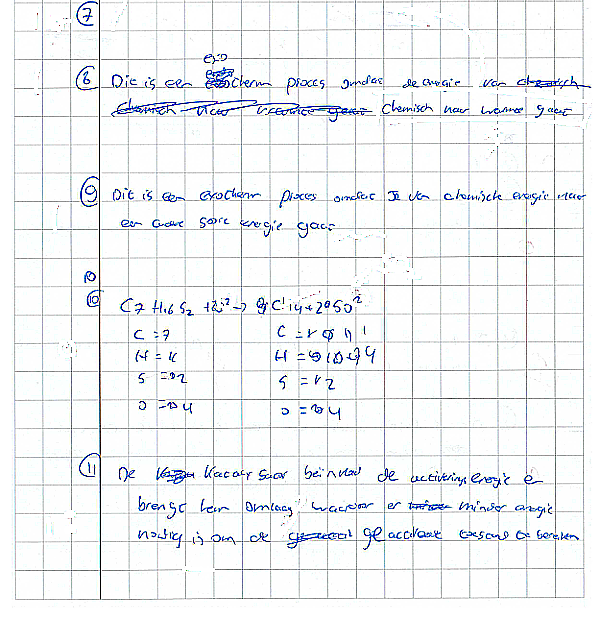 7
exo
8 Dit is een therm proces omdat de energie van
Chemisch naar warmte gaat
9 Dit is een exotherm proces omdat Je van chemische energie naar
een andere soort energie gaat
10
10 C7 H16 S2
C = 7 C =
H = H =
S = 2 S = 2
O = 4 O = 4
11 De Katalysator beinvloed de activerings energie
brengt hem omlaag waardoor er minder energie
nodig is om de geactiveerde toestand te bereiken